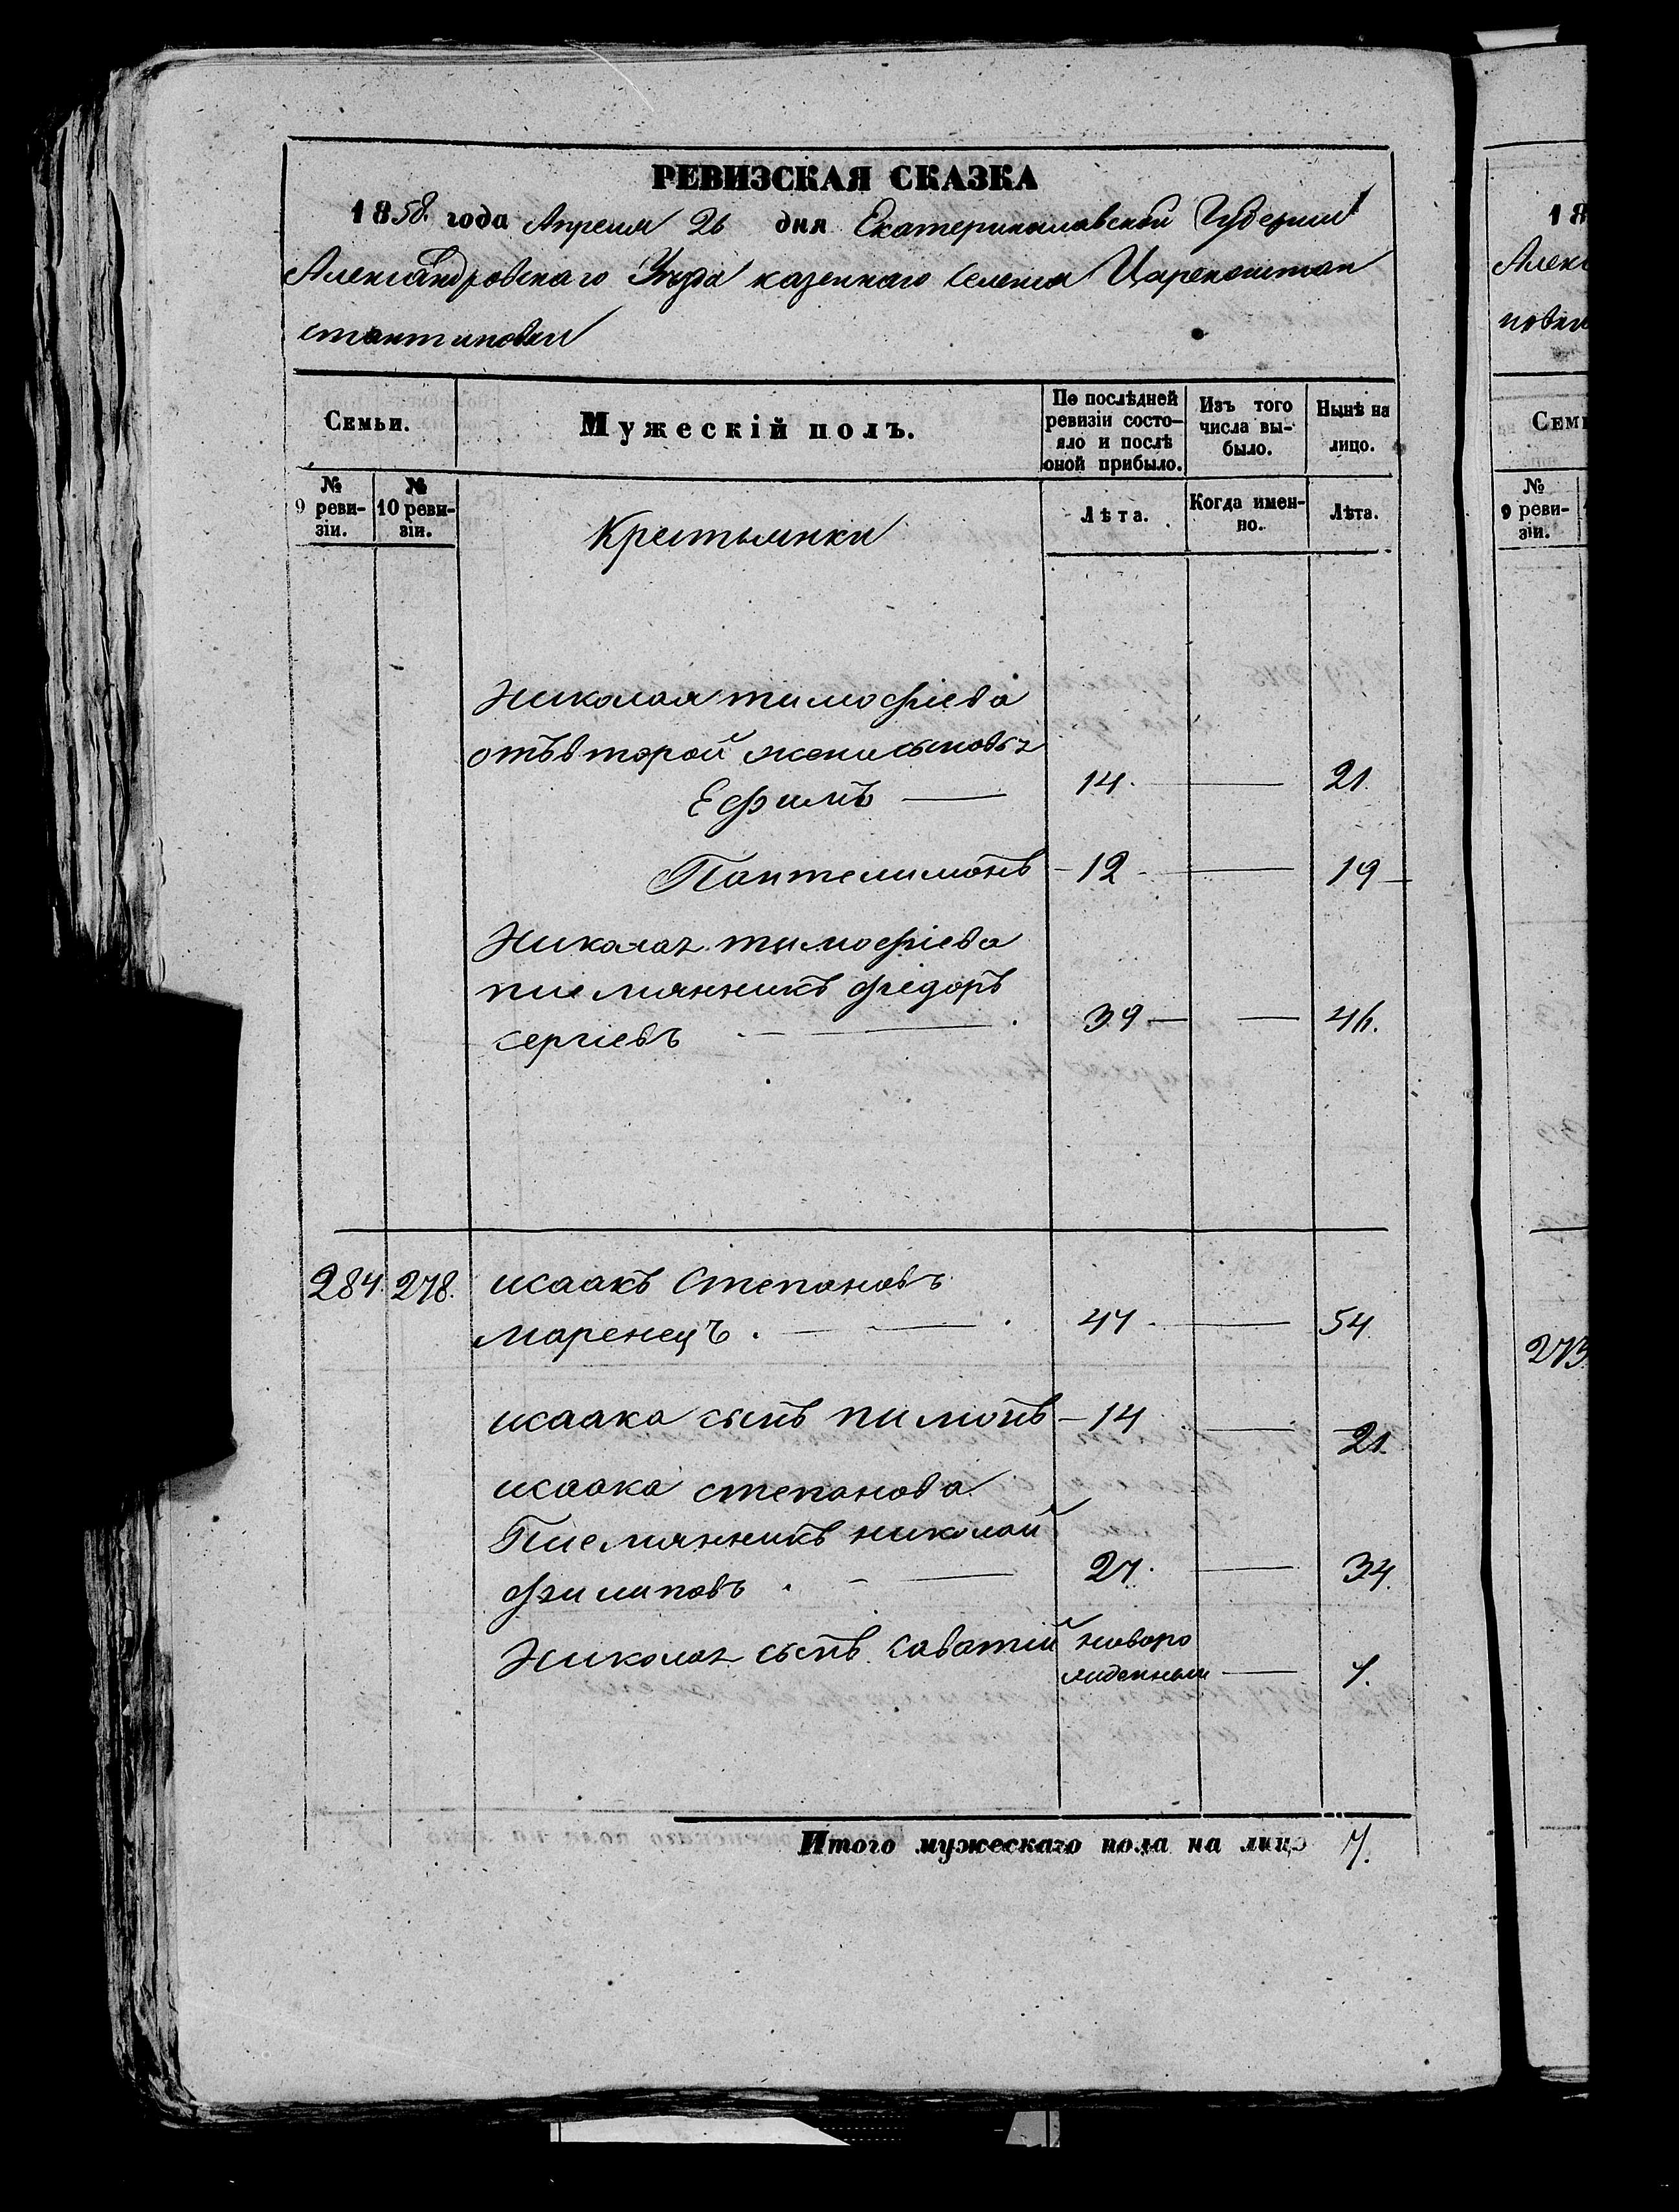 РЕВИЗСКАЯ СКАЗКА
1858. года Апреля 26 дня Екатеринославской Губернии
Александровского Уезда казенного Селения Цареконстан
стантиновки
Семьи.
Мужескій полъ.
По послѣдней ревизіи состояло и послѣ оной прибыло.
Изъ того числа вы-было.
Нынѣ на лицо.
№ 9 реви-зіи.
№ 10 реви-зіи.
Крестьянки
Лѣта.
Когда имен-но.
Лѣта.
Николая тимофіева
отъ второй жени сыновья
Ефимъ — 14. — 21.
Пантелимонъ — 12 — 19 —
Николая тимофіева
племянникъ фіедоръ
сергіевъ — 39 — — 46.
284. 278. исаакъ Степановъ
Маренецъ. — 47 — 54
исаака сынъ пимонъ — 14 — 21.
исаака степанова
Племянникъ николай
филиповъ. — 27. — 34.
Николая сынъ Саватий новоро
жденный — 7.
Итого мужескаго пола на лицо 7.
18
Алек
новки
Семь
№
9 реви-
зіи.
273.